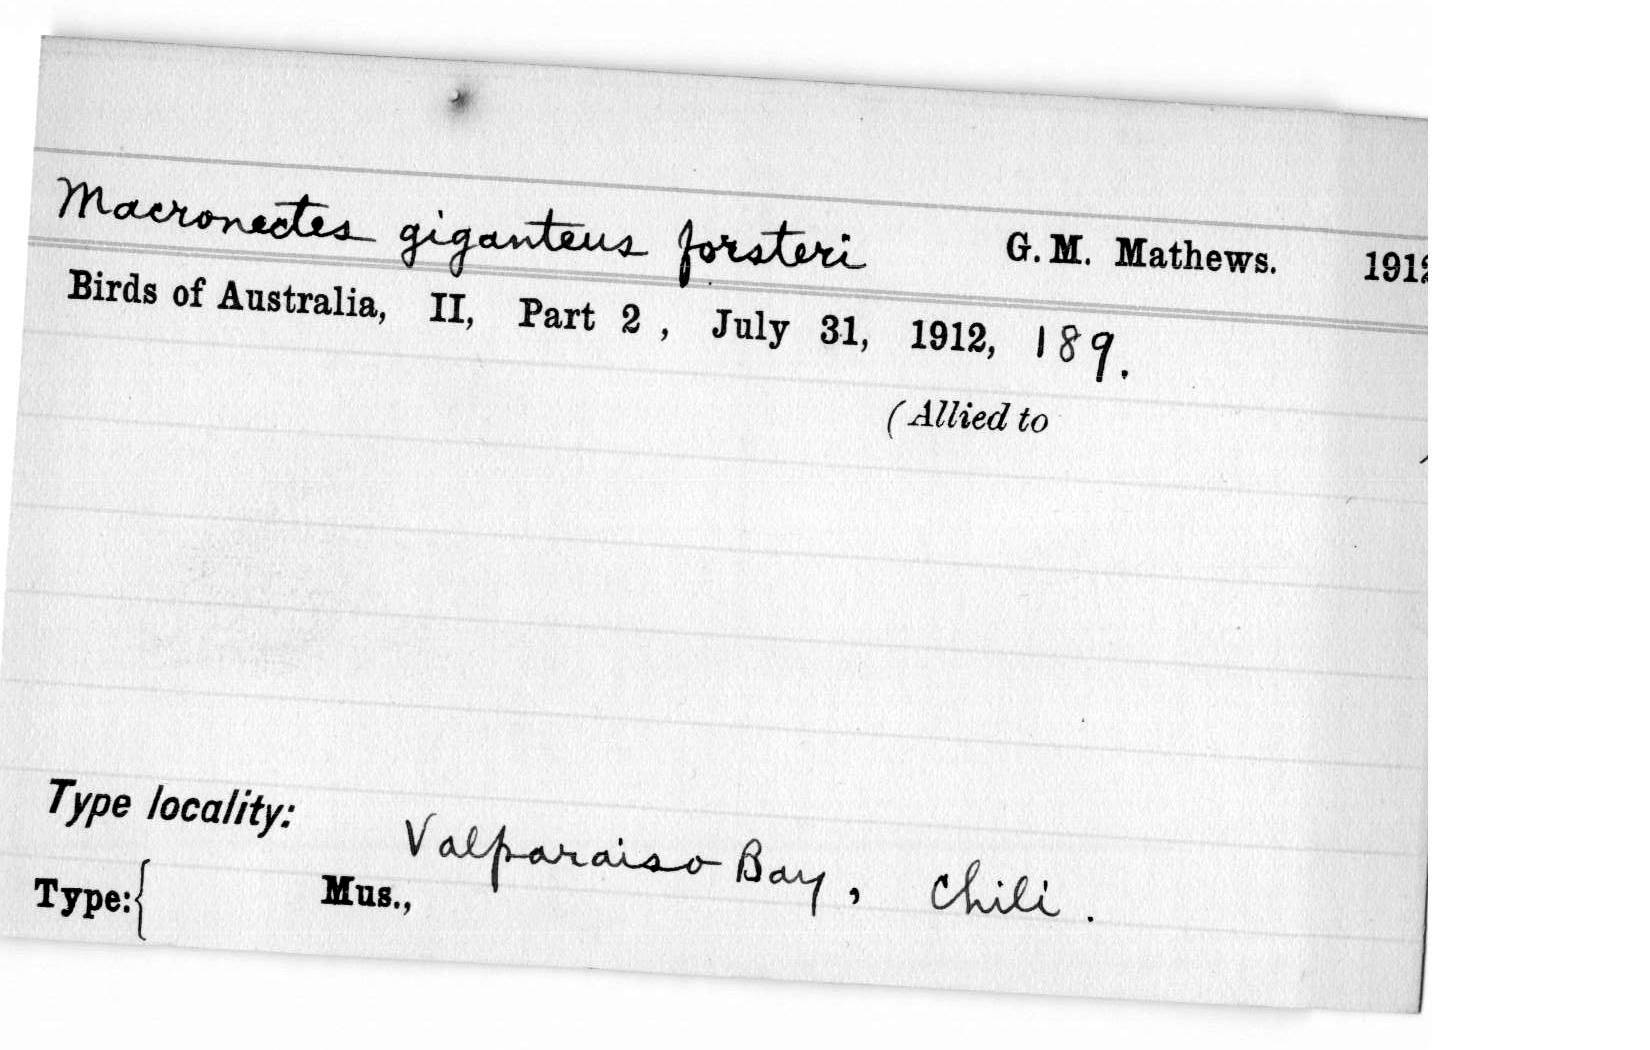 Macronectes giganteus forsteri G. M. Mathews. 1912
Birds of Australia, II, Part 2, July 31, 1912, 189.
(Allied to )
Type locality: Valparaiso Bay, Chili.
Type:{ Mus.,